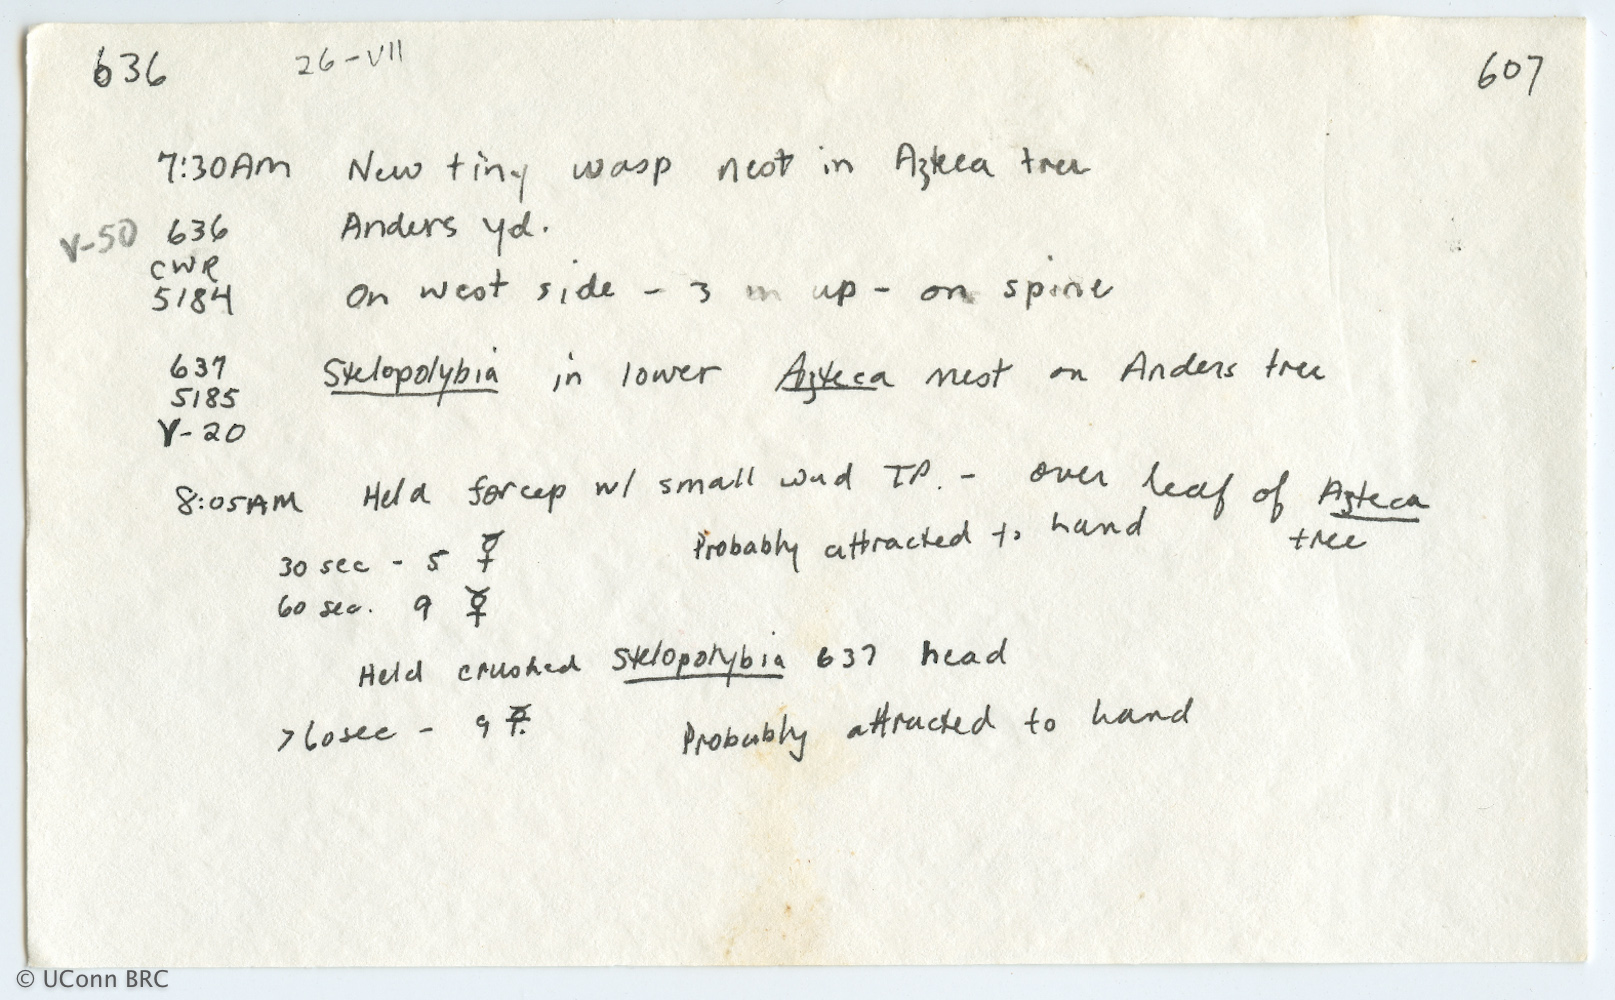 636 26-VII 607
7:30AM New tiny wasp nest in Azteca tree
V-50 636 Anders yd.
CWR
5184 On west side - 3 m up - on spine
637 Stelopolybia in lower Azteca nest on Anders tree
5185
V-20
8:05AM Held forcep w/ small wad T.P. - over leaf of Azteca
tree
30 sec - 5 ☿ Probably attracted to hand
60 sec. 9 ☿
Held crushed Stelopolybia 637 head
>60sec - 9 ☿. Probably attracted to hand
© UConn BRC